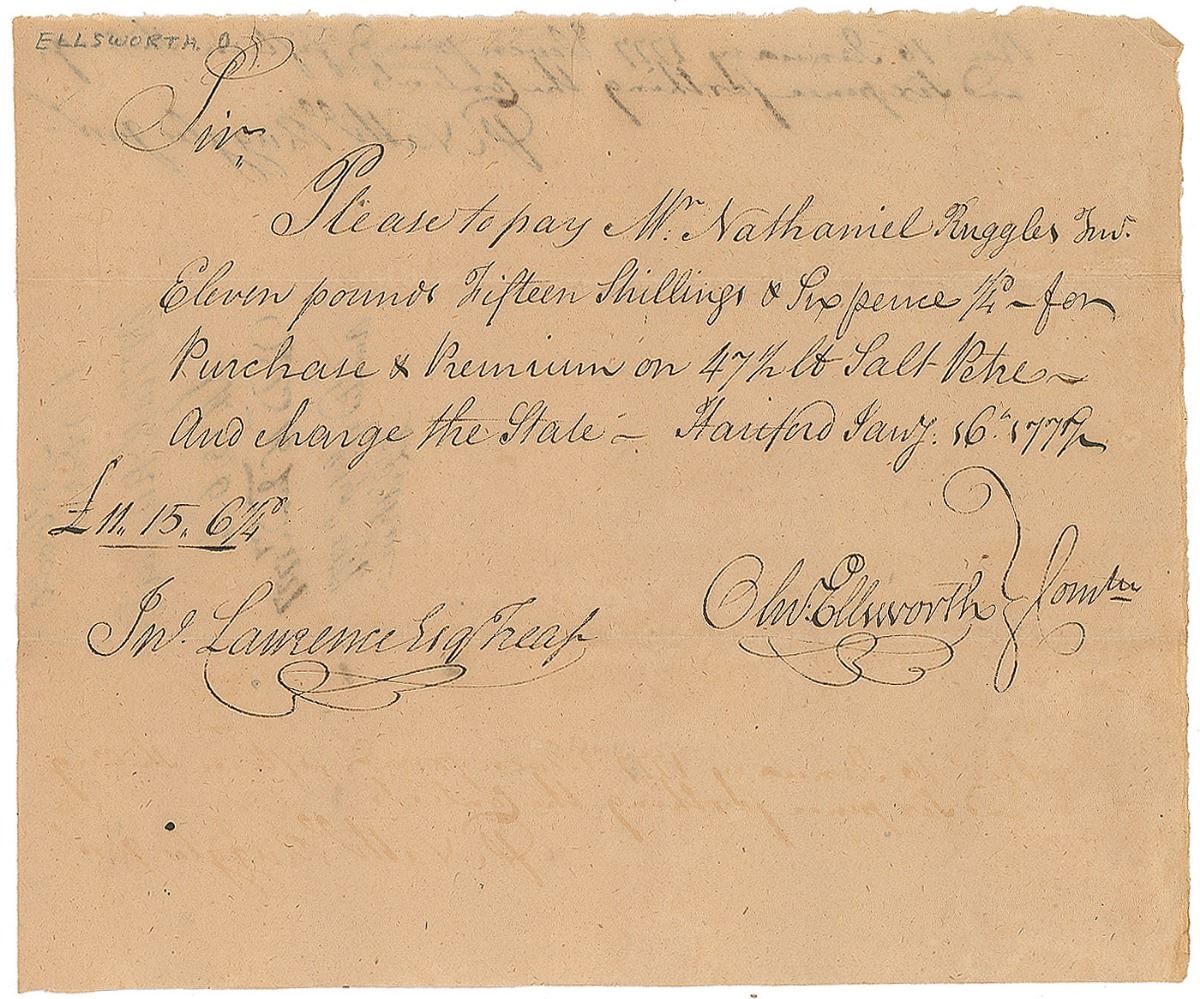 ELLSWORTH. O.
Sir,
Please to pay Mr. Nathaniel Ruggles Junr.
Eleven pounds Fifteen Shillings & Sixpence ¼d – for
Purchase & Premium on 47½ lb Salt Petre –
And charge the State – Hartford Jany. 16th 1777
£11„ 15„ 6¼d
Olivr. Ellsworth } Comtee
Jno. Lawrence Esqr Treasr